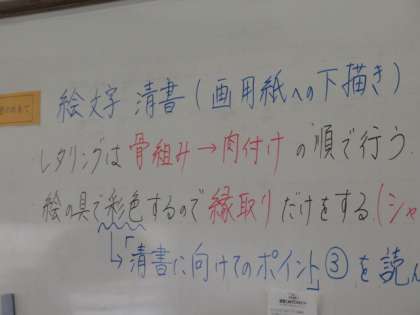 絵文字 清書(画用紙への下描き)
レタリングは骨組み→肉付けの順で行う.
絵の具で彩色するので縁取りだけをする.(シャ
↳「清書に向けてのポイント」③を読ん